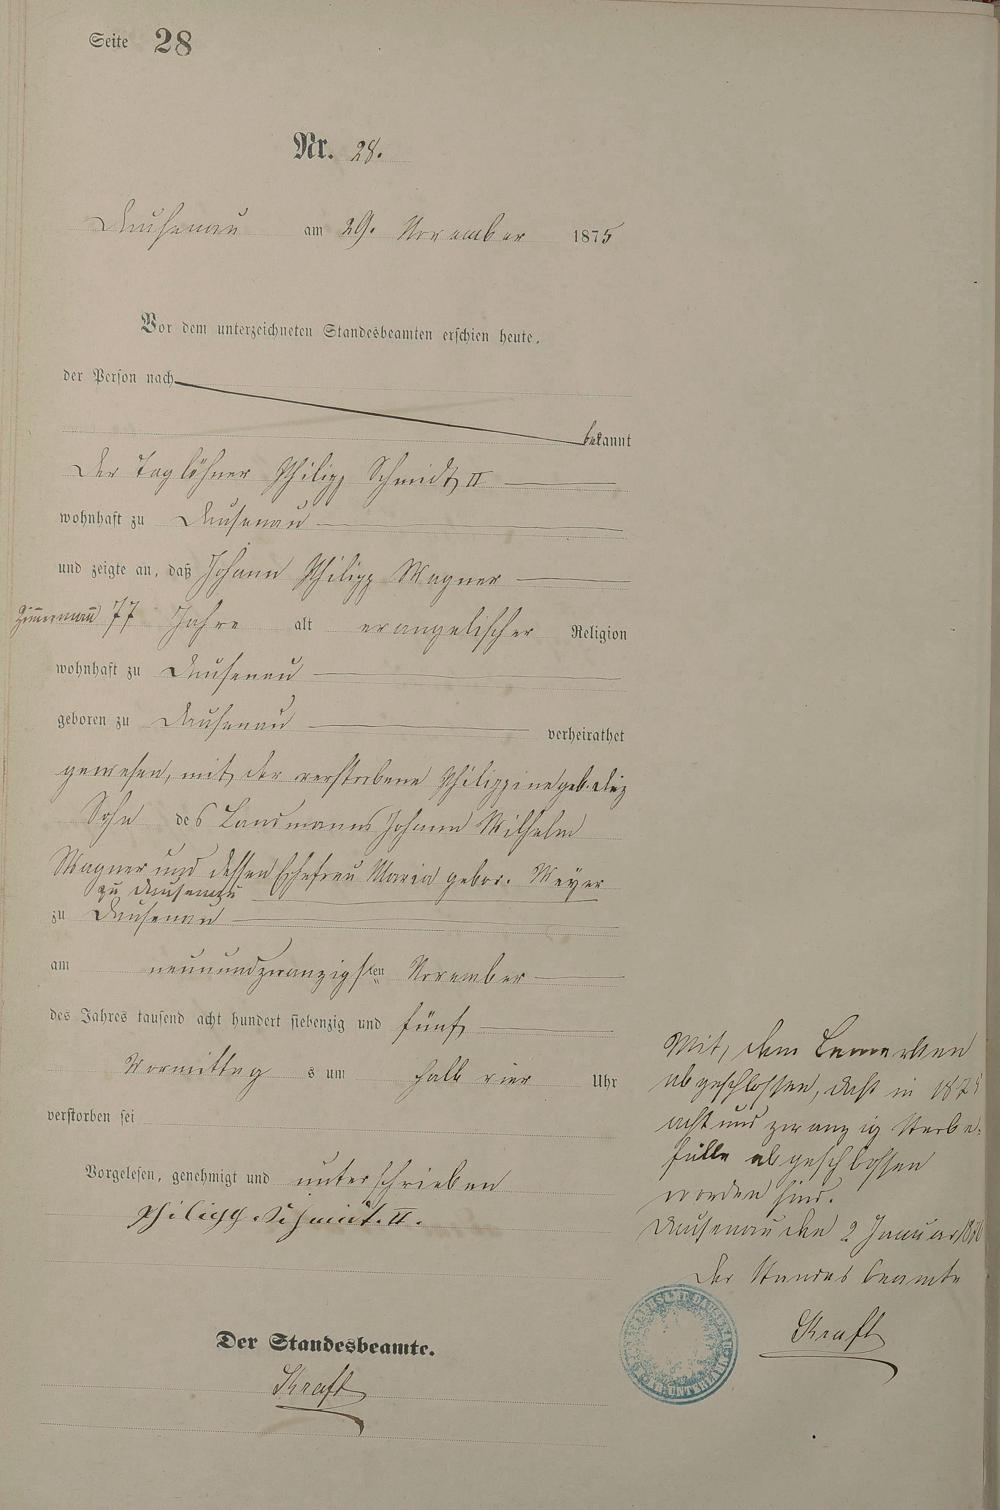 Seite 28
Nr. 28.
Dausenau am 29. November 1875
Vor dem unterzeichneten Standesbeamten erschien heute,
der Person nach
bekannt
Der Taglöhner Philipp Schmidt II
wohnhaft zu Dausenau
und zeigte an, daß Johann Philipp Wagner
Zim̄erman̄ 77 Jahre alt evangelischer Religion
wohnhaft zu Dausenau
geboren zu Dausenau verheirathet
gewesen, mit der verstorbene Philippine geb.
Sohn des Landmanns Johann Wilhelm
Wagner und dessen Ehefrau Maria gebor. Meyer
zu Dausenau
zu Dausenau
am neunundzwanzigsten November
des Jahres tausend acht hundert siebenzig und fünf
Vormittag s um halb vier Uhr
verstorben sei
Vorgelesen, genehmigt und unterschrieben
Philipp Schmidt. II.
Der Standesbeamte.
Kraft
Mit dem Bemerken
abgeschlossen, daß in 1875
acht und zwanzig Sterbe-
fälle abgeschlossen
worden sind.
Dausenau den 2 Januar 1876
Der Standesbeamte
Kraft